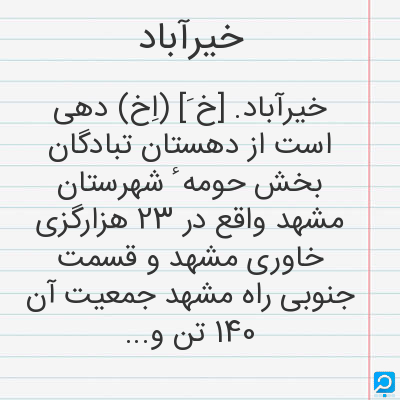 خیرآباد
خیرآباد. [خ َ] (اِخ) دهی
است از دهستان تبادگان
بخش حومه ٔ شهرستان
مشهد واقع در ۲۳ هزارگزی
خاوری مشهد و قسمت
جنوبی راه مشهد جمعیت آن
۱۴۰ تن و...